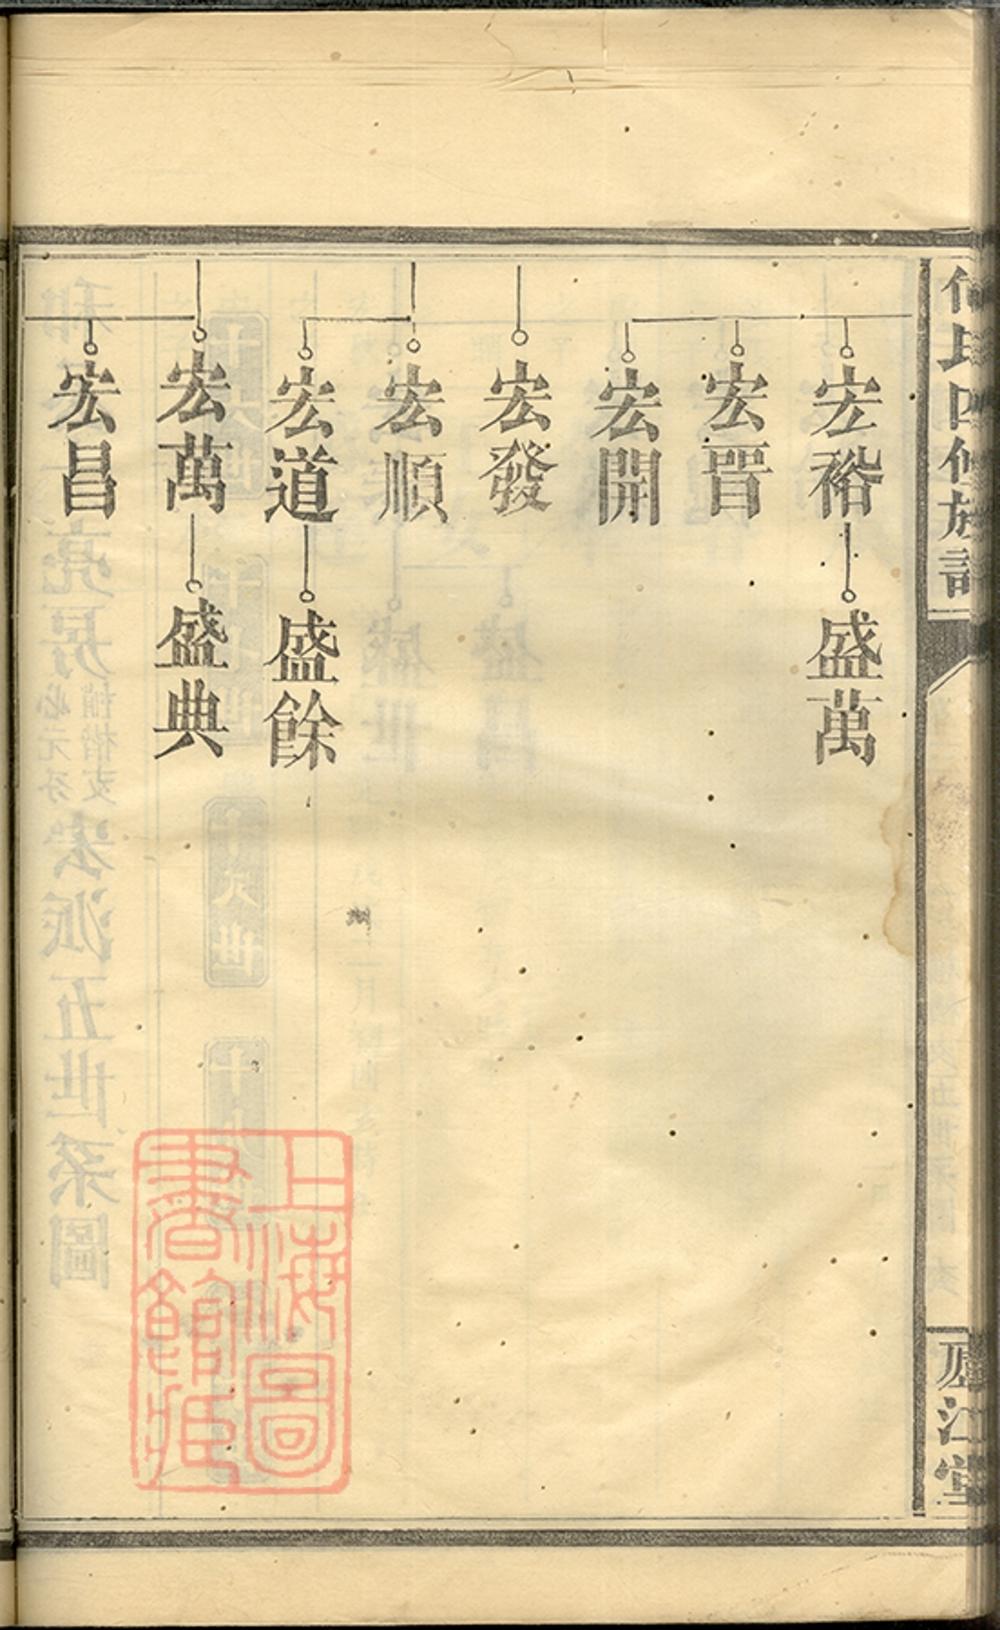 何氏四修族譜
廬江堂
宏裕
盛萬
宏晋
宏開
宏發
宏順
宏道
盛餘
宏萬
盛典
宏昌
上海圖
書館藏